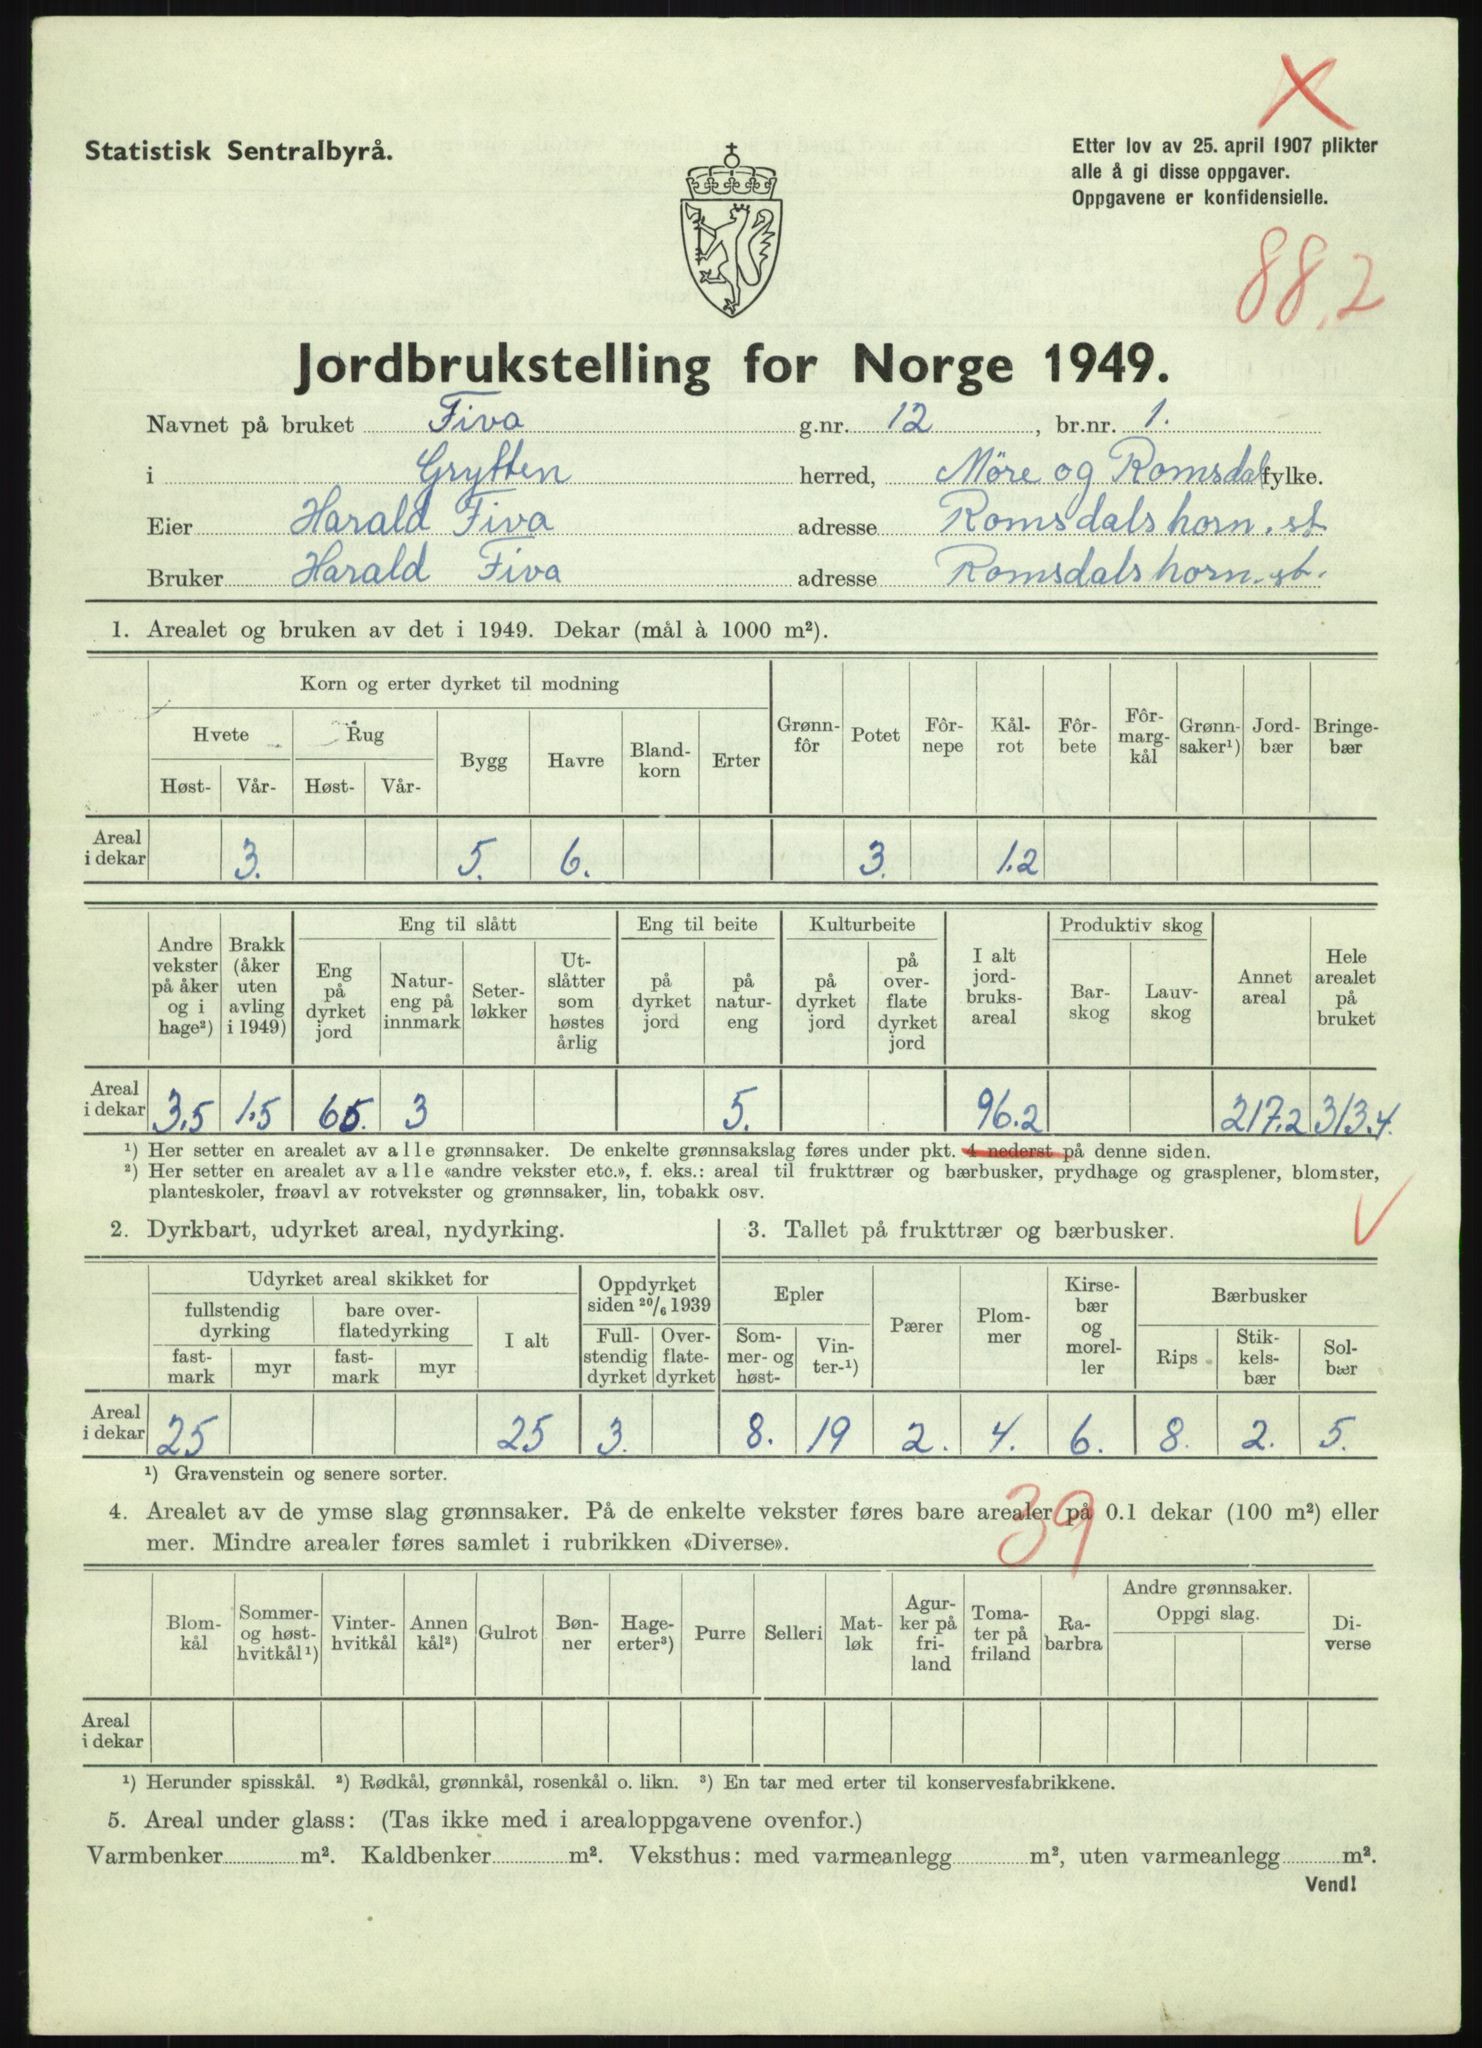 Statistisk Sentralbyrå.
Etter lov av 25. april 1907 plikter
alle å gi disse oppgaver.
Oppgavene er konfidensielle.
88,2
Jordbrukstelling for Norge 1949.
Navnet på bruket Fiva g.nr. 12, br.nr. 1.
i Grytten herred, Möre og Romsdal fylke.
Eier Harald Fiva adresse Romsdalshorn. st
Bruker Harald Fiva adresse Romsdalshorn. st.
1. Arealet og bruken av det i 1949. Dekar (mål à 1000 m²).
Korn og erter dyrket til modning
Hvete Rug Bygg Havre Bland-korn Erter Grønn-fôr Potet Fôr-nepe Kål-rot Fôr-bete Fôr-marg-kål Grønn-saker¹) Jord-bær Bringe-bær
Høst- Vår- Høst- Vår-
Areal i dekar 3. 5. 6. 3. 1.2
Andre vekster på åker og i hage²) Brakk (åker uten avling i 1949) Eng til slått Eng til beite Kulturbeite I alt jord-bruks-areal Produktiv skog Annet areal Hele arealet på bruket
Eng på dyrket jord Natur-eng på innmark Seter-løkker Ut-slåtter som høstes årlig på dyrket jord på natur-eng på dyrket jord på over-flate dyrket jord Bar-skog Lauv-skog
Areal i dekar 3.5 1.5 65. 3 5. 96.2 217.2 313.4.
¹) Her setter en arealet av alle grønnsaker. De enkelte grønnsakslag føres under pkt. 4 nederst på denne siden.
²) Her setter en arealet av alle «andre vekster etc.», f. eks.: areal til frukttrær og bærbusker, prydhage og grasplener, blomster,
planteskoler, frøavl av rotvekster og grønnsaker, lin, tobakk osv.
2. Dyrkbart, udyrket areal, nydyrking.
3. Tallet på frukttrær og bærbusker.
Udyrket areal skikket for Oppdyrket siden 20/6 1939 Epler Pærer Plom-mer Kirse-bær og morel-ler Bærbusker
fullstendig dyrking bare over-flatedyrking I alt
fast-mark myr fast-mark myr Full-stendig dyrket Over-flate-dyrket Som-mer- og høst- Vin-ter-¹) Rips Stik-kels-bær Sol-bær
Areal i dekar 25 25 3. 8. 19 2. 4. 6. 8. 2. 5.
¹) Gravenstein og senere sorter.
39
4. Arealet av de ymse slag grønnsaker. På de enkelte vekster føres bare arealer på 0.1 dekar (100 m²) eller
mer. Mindre arealer føres samlet i rubrikken «Diverse».
Blom-kål Sommer- og høst-hvitkål¹) Vinter-hvitkål Annen kål²) Gulrot Bøn-ner Hage-erter³) Purre Selleri Mat-løk Agur-ker på fri-land Toma-ter på friland Ra-barbra Andre grønnsaker. Oppgi slag. Di-verse
Areal i dekar
¹) Herunder spisskål. ²) Rødkål, grønnkål, rosenkål o. likn. ³) En tar med erter til konservesfabrikkene.
5. Areal under glass: (Tas ikke med i arealoppgavene ovenfor.)
Varmbenker m². Kaldbenker m². Veksthus: med varmeanlegg m², uten varmeanlegg m².
Vend!